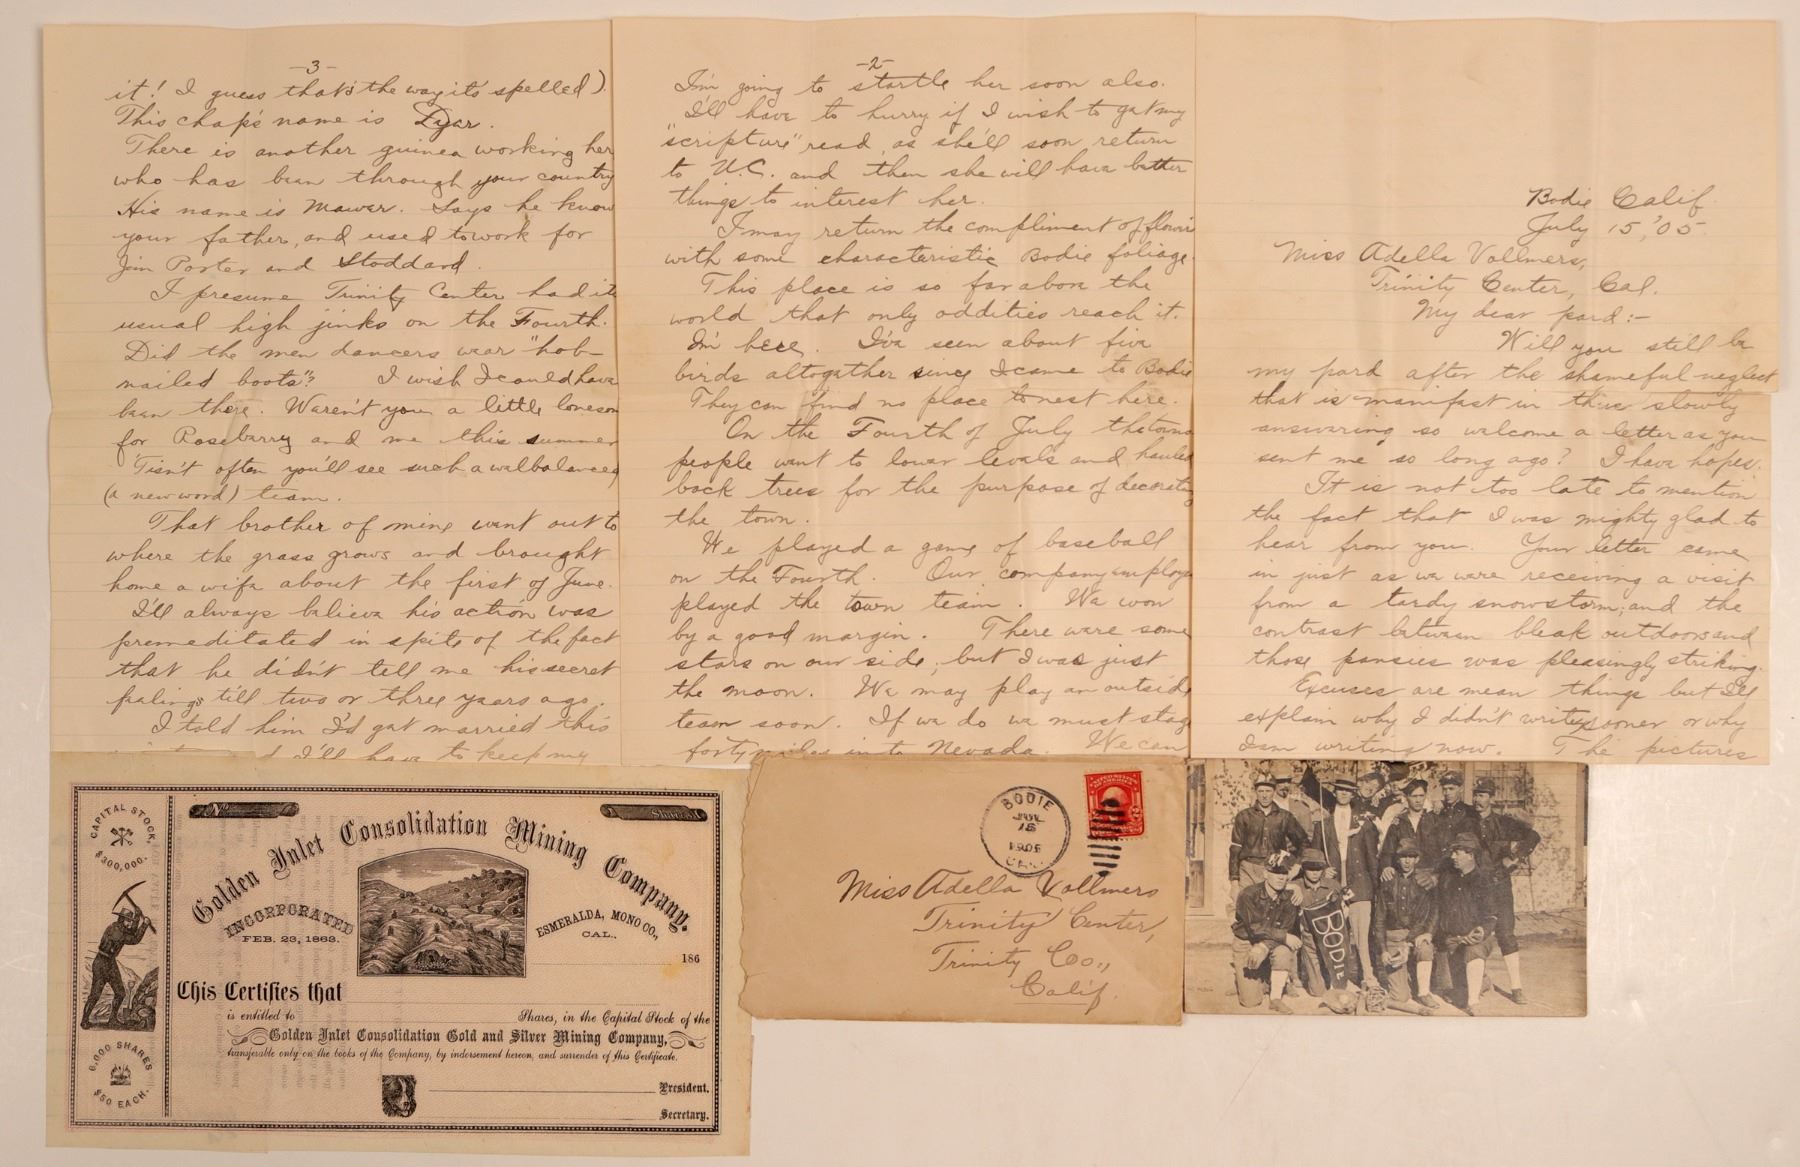 Bodie Calif.
July 15, '05.
Miss Adella Vollmers,
Trinity Center, Cal.
My dear pard:-
Will you still be
my pard after the shameful neglect
that is manifest in thus slowly
answering so welcome a letter as you
sent me so long ago? I have hopes.
It is not too late to mention
the fact that I was mighty glad to
hear from you. Your letter came
in just as we were receiving a visit
from a tardy snowstorm, and the
contrast between bleak outdoors and
those pansies was pleasingly striking.
Excuses are mean things but I'll
explain why I didn't write sooner or why
I am writing now. The pictures
-2-
I'm going to startle her soon also.
I'll have to hurry if I wish to get my
"scripture" read, as she'll soon return
to U.C. and then she will have better
things to interest her.
I may return the compliment of flowers
with some characteristic Bodie foliage.
This place is so far above the
world that only oddities reach it.
I'm here. I've seen about five
birds altogether since I came to Bodie
They can find no place to nest here.
On the Fourth of July the towns
people went to lower levels and hauled
back trees for the purpose of decorating
the town.
We played a game of baseball
on the Fourth. Our company employe
played the town team. We won
by a good margin. There were some
stars on our side, but I was just
the moon. We may play an outside
team soon. If we do we must stage
forty miles in to Nevada. We can
-3-
it! I guess that's the way it's spelled).
This chap's name is
There is another guinea working her
who has been through your country
His name is Mawer. Says he know
your father, and used to work for
Jim Porter and Stoddard.
I presume Trinity Center had its
usual high jinks on the Fourth.
Did the men dancers wear "hob-
nailed boots"? I wish I could have
been there. Weren't you a little loneson
for Roseberry and me this summer
'Tisn't often you'll see such a welbalanced
(a new word) team.
That brother of mine went out to
where the grass grows and brought
home a wife about the first of June.
I'll always believe his action was
premeditated in spite of the fact
that he didn't tell me his secret
feelings till two or three years ago.
I told him I'd get married this
I'll have to keep my
CAPITAL STOCK,
$300,000.
6,000 SHARES
$50 EACH.
No
Shares
Golden Inlet Consolidation Mining Company.
INCORPORATED
FEB. 23, 1863.
ESMERALDA, MONO CO.,
CAL.
186
This Certifies that
is entitled to Shares, in the Capital Stock of the
Golden Inlet Consolidation Gold and Silver Mining Company,
transferable only on the books of the Company, by indorsement hereon, and surrender of this Certificate.
President.
Secretary.
BODIE
JUL
1905
CAL.
UNITED STATES
Miss Adella Vollmers
Trinity Center,
Trinity Co.,
Calif.
BODIE